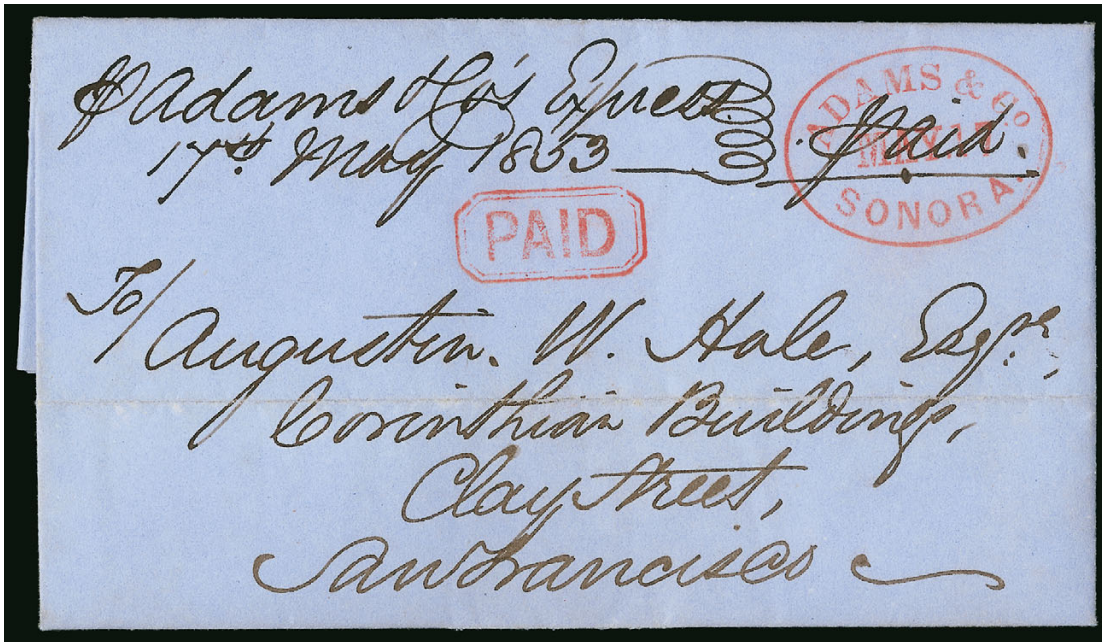 p Adams & Co's Express
17th May 1853
Paid.
ADAMS & Co.
MAY.17
SONORA.
PAID
To/
Augustin. W. Hale, Esqre,
Corinthian Buildings,
Clay Street,
San Francisco